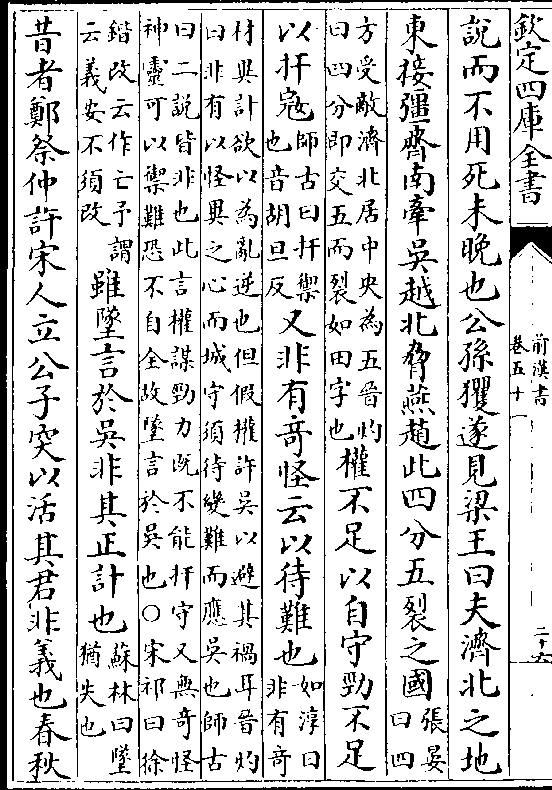 欽定四庫全書
前漢書
卷五十一
二十六
說而不用死未晚也公孫玃遂見梁王曰夫濟北之地
東接彊齊南牽吳越北脅燕趙此四分五裂之國張晏
曰四
方受敵濟北居中央為五晉灼
曰四分即交五而裂如田字也權不足以自守勁不足
以扞寇師古曰扞禦
也音胡旦反又非有奇怪云以待難也如淳曰
非有奇
材異計欲以為亂逆也但假權許吳以避其禍耳晉灼
曰非有以怪異之心而城守須待變難而應吳也師古
曰二說皆非也此言權謀勁力既不能扞守又無奇怪
神靈可以禦難恐不自全故墜言於吳也○宋祁曰徐
鍇改云作亡予謂
云義安不須改雖墜言於吳非其正計也蘇林曰墜
猶失也
昔者鄭祭仲許宋人立公子突以活其君非義也春秋